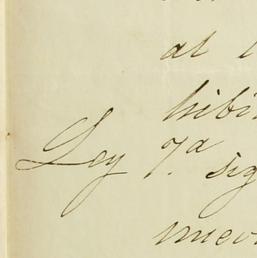 al
hibi
Ley 7.a sig
nuev